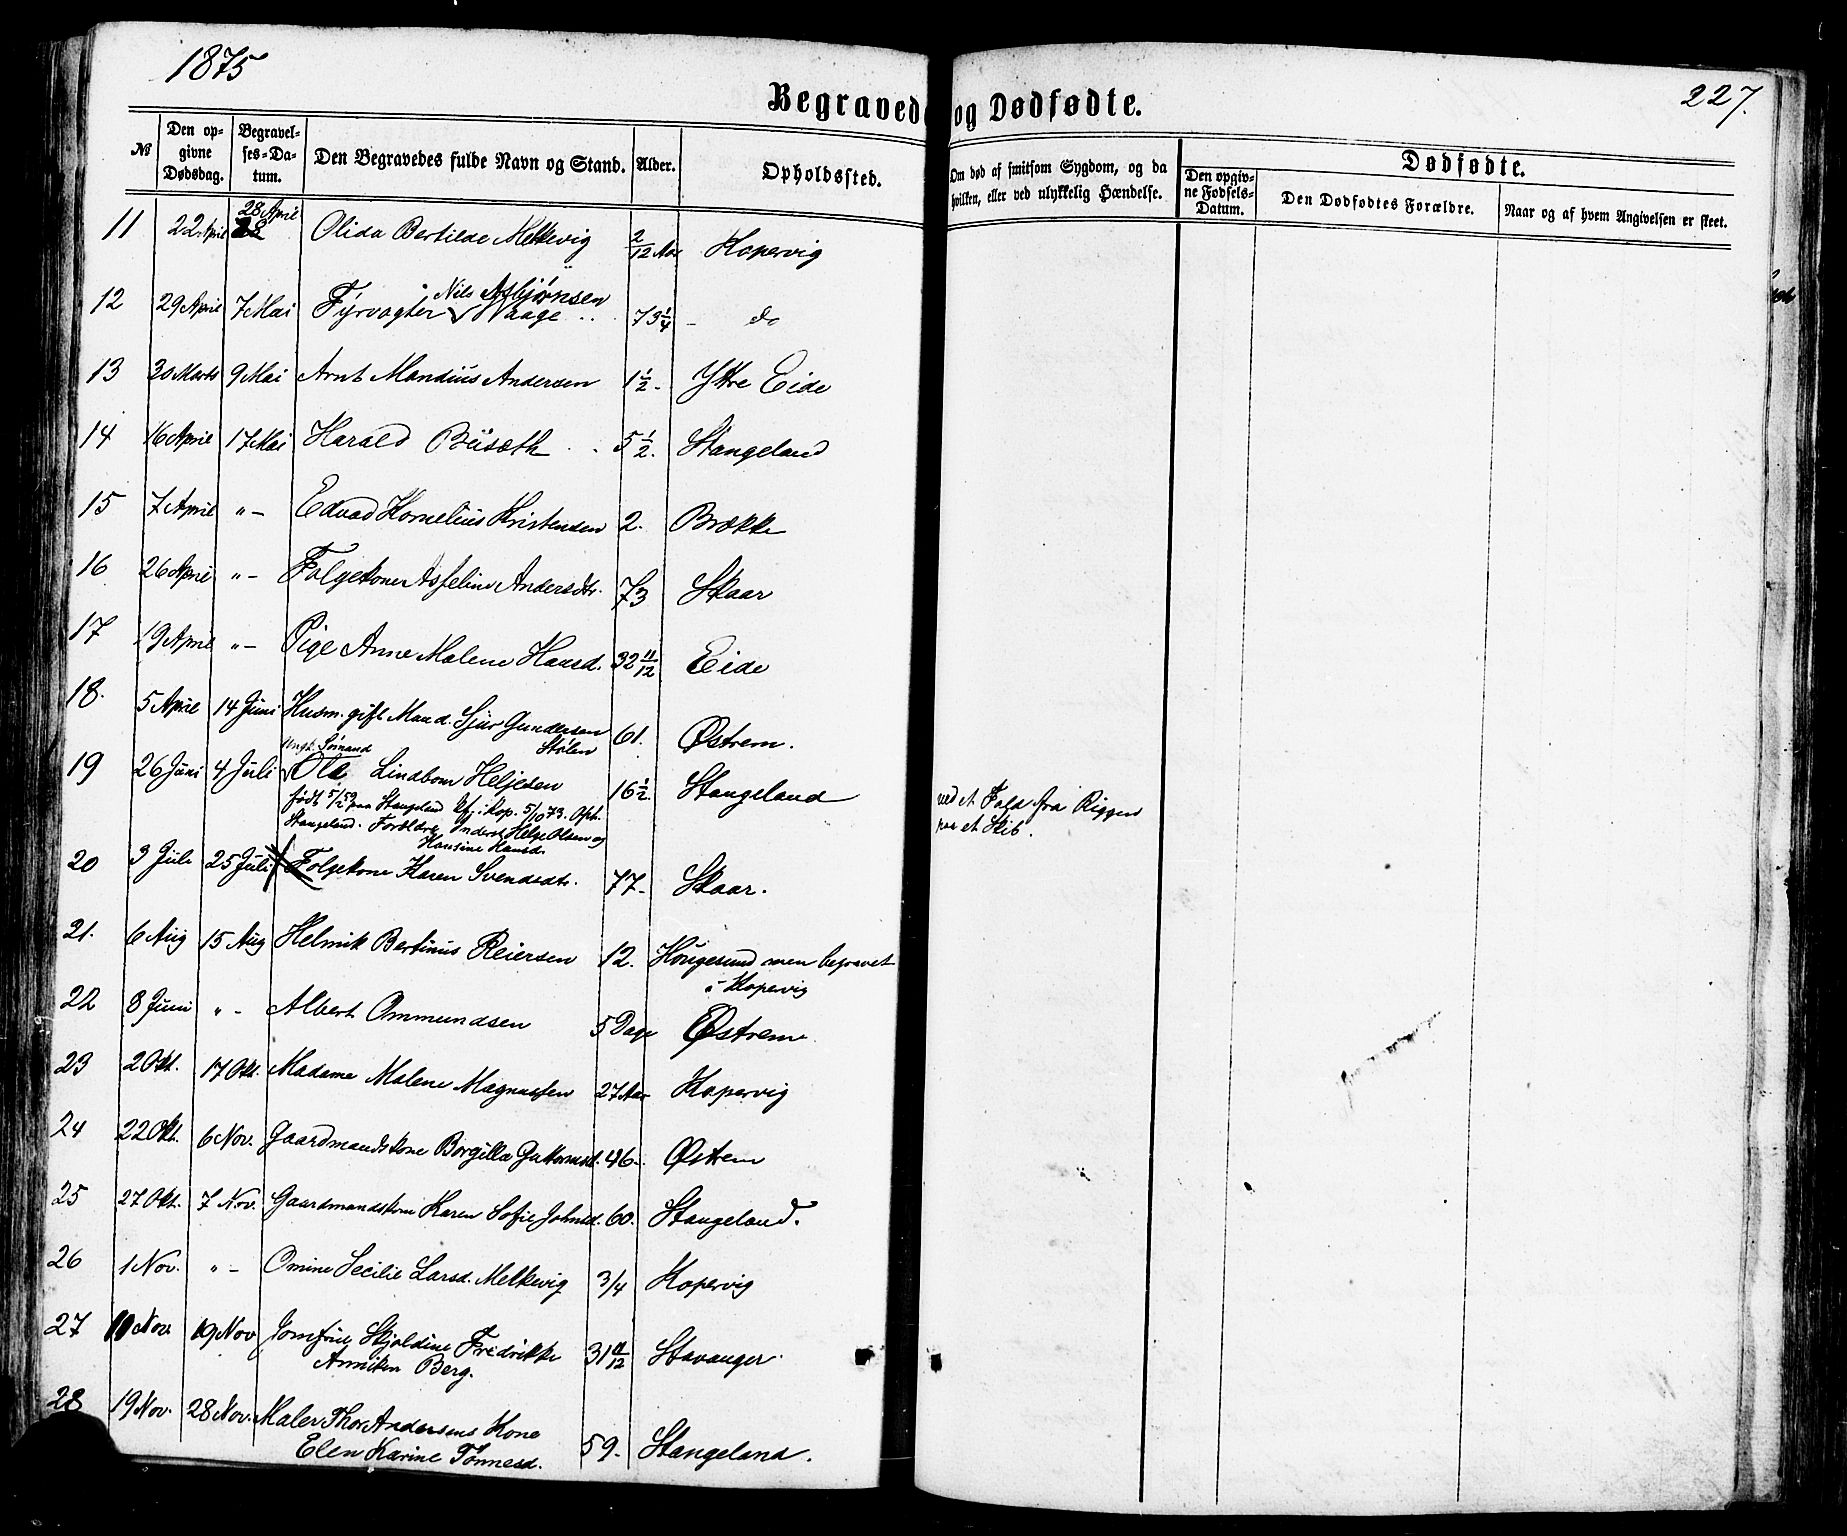 1875
227.
Begravede og Dødfødte.
№ | Den opgivne Dødsdag. | Begravelses-Datum. | Den Begravedes fulde Navn og Stand. | Alder. | Opholdssted. | Om død af smitsom Sygdom, og da hvilken, eller ved ulykkelig Hændelse. | Dødfødte. | Den opgivne Fødsels-Datum. | Den Dødfødtes Forældre. | Naar og af hvem Angivelsen er skeet.
11 22 April 28 April Olida Bertilde Melkevig 2/12 Aar Kopervig
12 29 April 7 Mai Fyrvogter Nils Asbjørnsen Waage 73 1/4 - do
13 30 Marts 9 Mai Arnt Mandius Andersen 1 1/2 - Ytre Eide
14 16 April 17 Mai Harald Büseth 5 1/2. Stangeland
15 7 April "- Edvad Kornelius Kristensen 2. Brække
16 26 April "- Folgekone Asseline Andersdtr. 73 Skaar
17 19 April "- Pige Anne Malene Hansd. 32 11/12 Eide
18. 5 April 14 Juni Husm. gift Mand. Sjur Gundersen
Stølen 61. Østrem.
19 26 Juni 4 Juli Ungk. Sømand
Ole Lindbom Heljesen 16 1/2. Stangeland ved et Fald fra Riggen
paa et Skib.
født 5/2 59 paa Stangeland Kf. i Kop. 5/10 73. Oph.
Stangeland. Forældre Inderst Helge Olsen og
Hansine Hansd.
20 3 Juli 25 Juli Folgekone Karen Svendsdtr. 77- Skaar.
21. 6 Aug 15 Aug Helmik Bertinus Reiersen 12. Hougesund men begravet
i Kopervig
22 8 Juni "- Albert Ommundsen 5 Dage Østrem
23 2 Okt. 17 Okt. Madame Malene Magnussen 27 Aar Kopervig
24 22 Okt. 6 Nov. Gaardmandskone Borgilla Guttormsd. 46- Østrem
25 27 Okt. 7 Nov. Gaardmandskone Karen Sofie Johnsd. 60. Stangeland.
26 1 Nov. "- Omine Secilie Larsd. Melkevig 3/4 Kopervig
27 10 Nov. 19 Nov Jomfrue Skjoldine Fredrikke
Anniken Berg. 31 11/12 Stavanger.
28 19 Nov. 28 Nov. Maler Thor Andersens Kone
Elen Karine Tønnesd. 59- Stangeland.